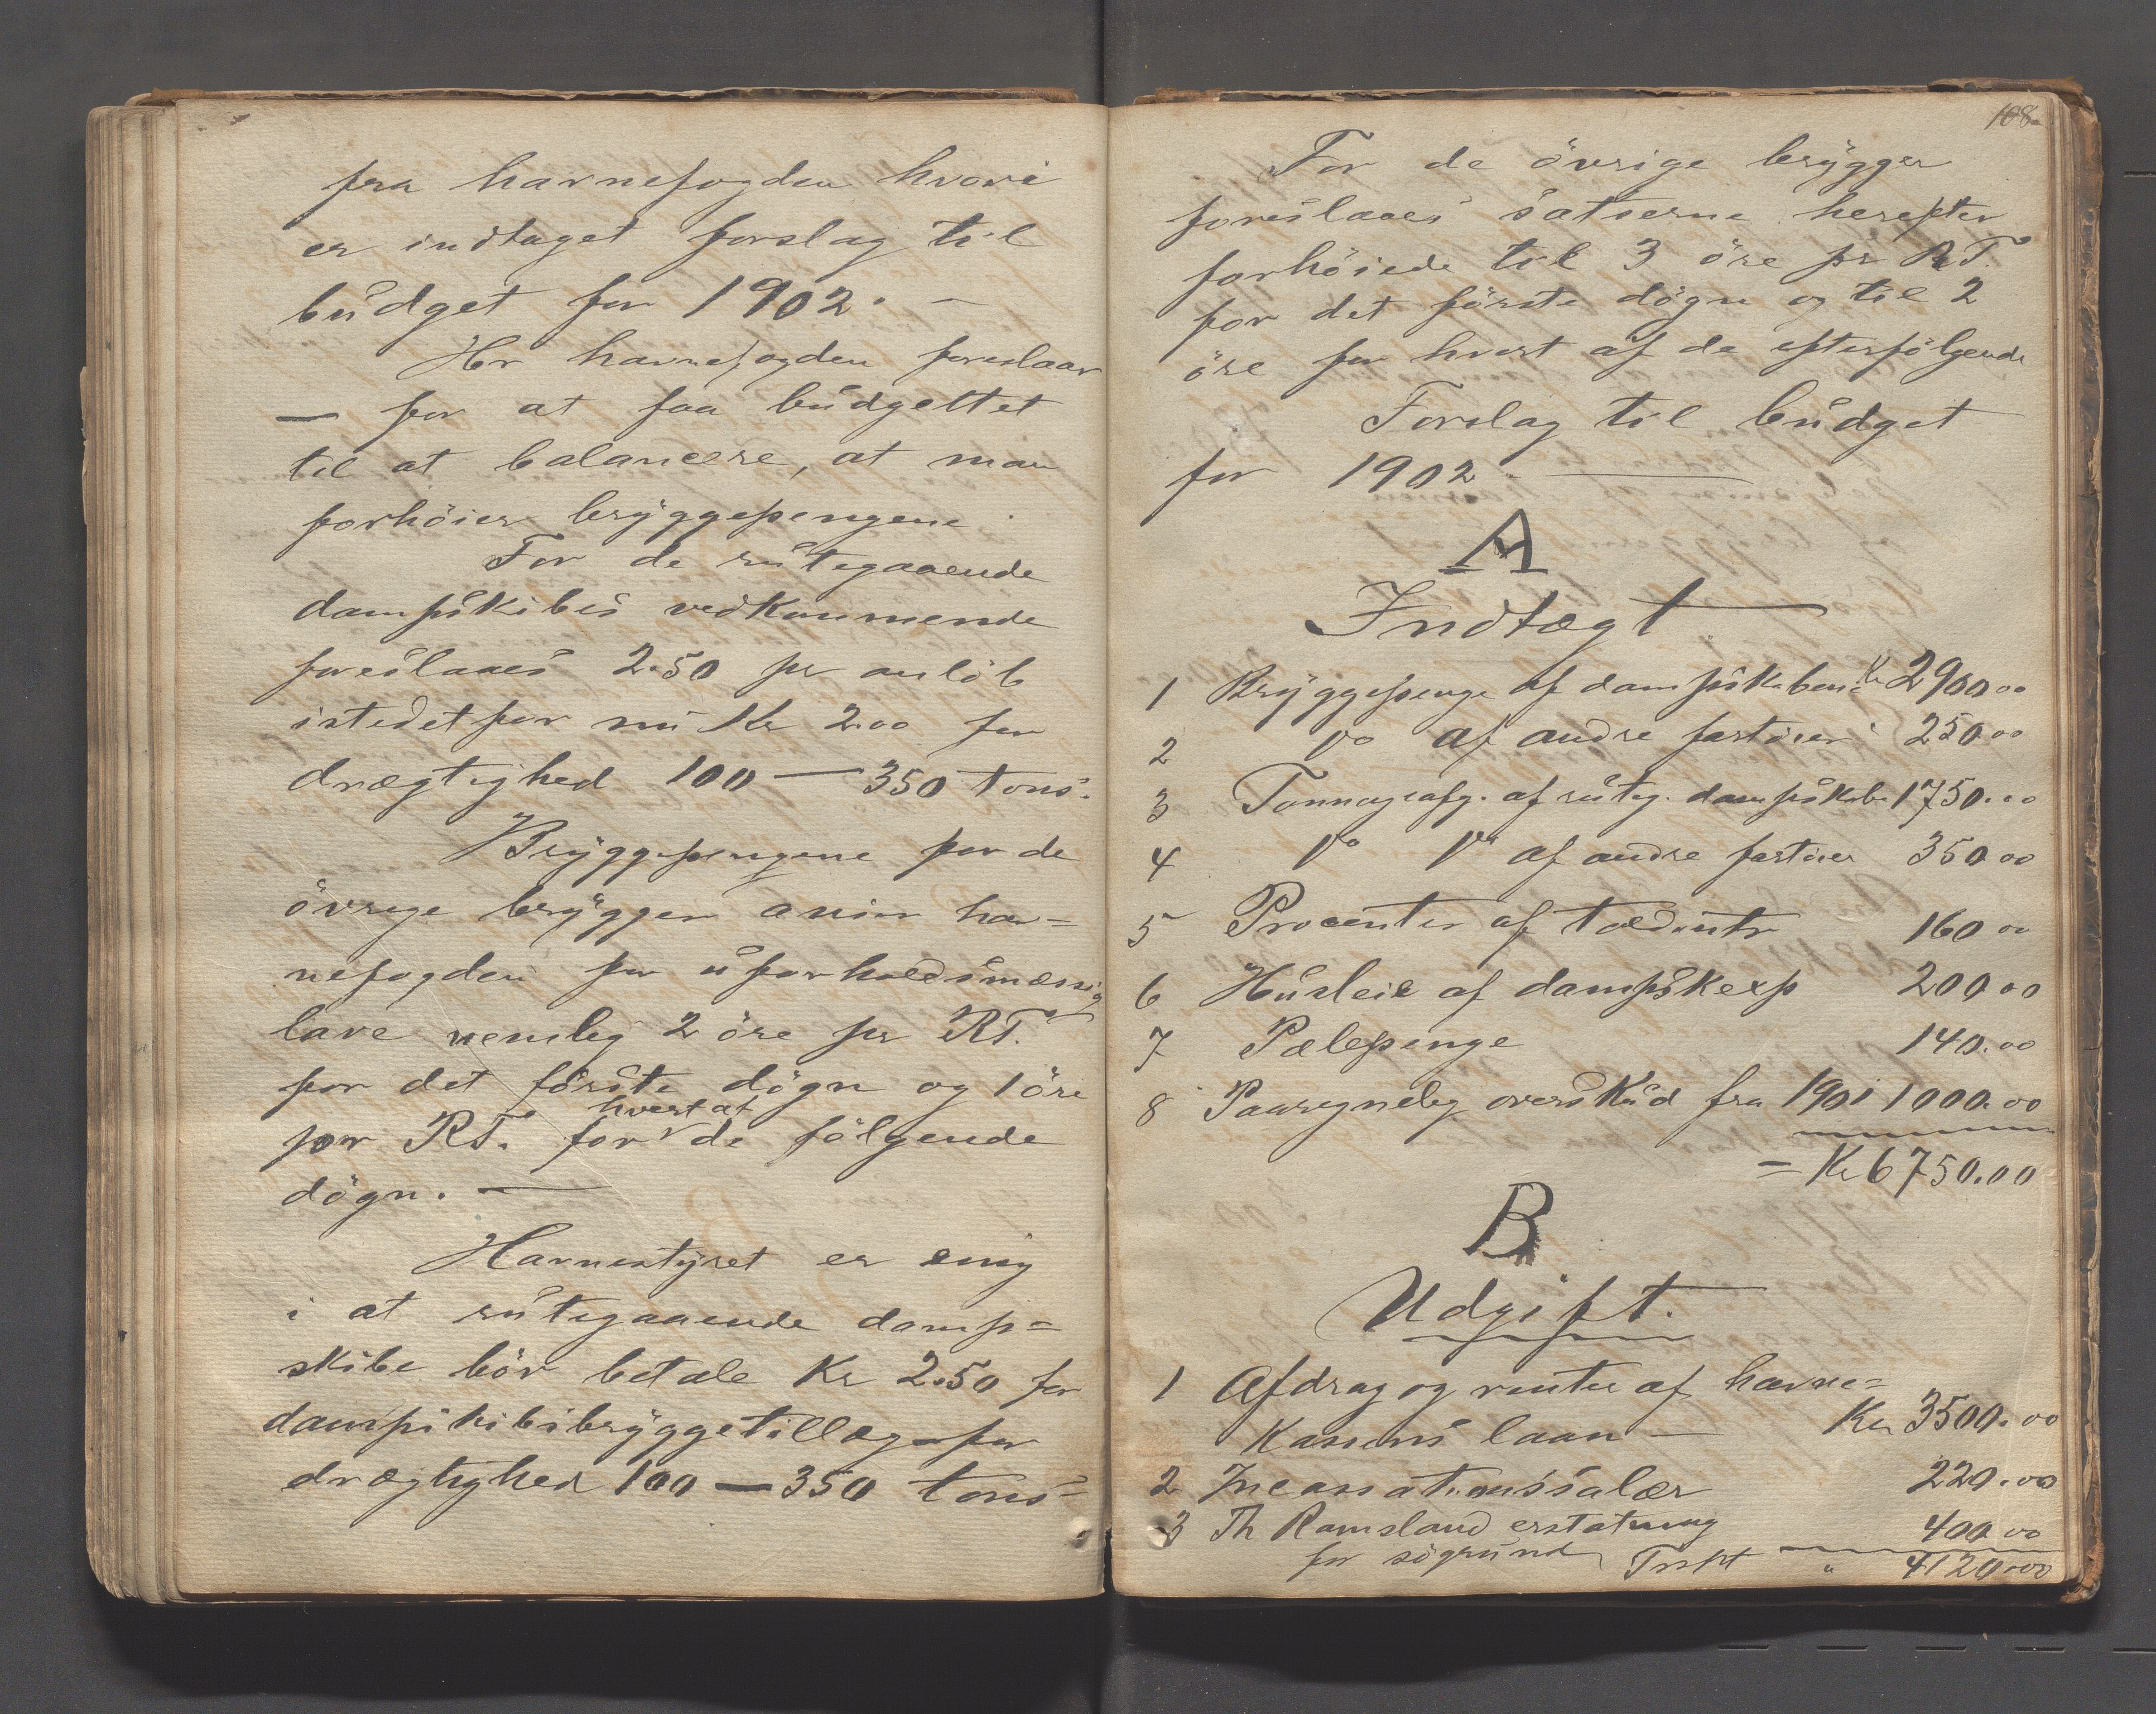 fra havnefogden hvori
er indtaget forslag til
budget for 1902. —
Hr havnefogden foreslaar
— for at faa budgettet
til at balancere, at man
forhöier bryggepengene.
For de rutegaaende
dampskibes vedkommende
foreslaaes 2.50 pr anlöb
istedetfor nu Kr 2.00 for
drægtighed 100 — 350 tons.
Bryggepengene for de
övrige brygger anser hav=
nefogden for uforholdsmæssig
lave nemlig 2 öre pr RT.
for det förste dögn og 1 öre
hvert af
per RT. for de fölgende
dögn. —
Havnestyret er enig
i at rutegaaende damp=
skibe bör betale Kr 2.50 for
dampskibsbryggetillæg for
drægtighed 100 — 350 tons=
168
For de övrige brygger
foreslaaes satserne herefter
forhöiede til 3 öre pr RT.
for det förste dögn og til 2
öre for hvert af de efterfölgende
Forslag til budget
for 1902. —
A
Indtægt
1 Bryggepenge af dampskibene Kr 2900.00
2 Do af andre fartöier 250.00
3 Tonnageafg. af ruteg. dampskibe 1750.00
4 Do Do af andre fartöier 350.00
5 Procenter af toldintr 160.00
6 Husleie af dampskexp 200.00
7 Pælepenge 140.00
8 Paaregnelig overskud fra 1901 1000.00
= Kr 6750.00
B
Udgift.
1 Afdrag og renter af havne=
Kassens laan — Kr 3500.00
2 Incassationssalær 220.00
3 Th Ramsland erstatning 400.00
for sögrund Trspt " 4120.00